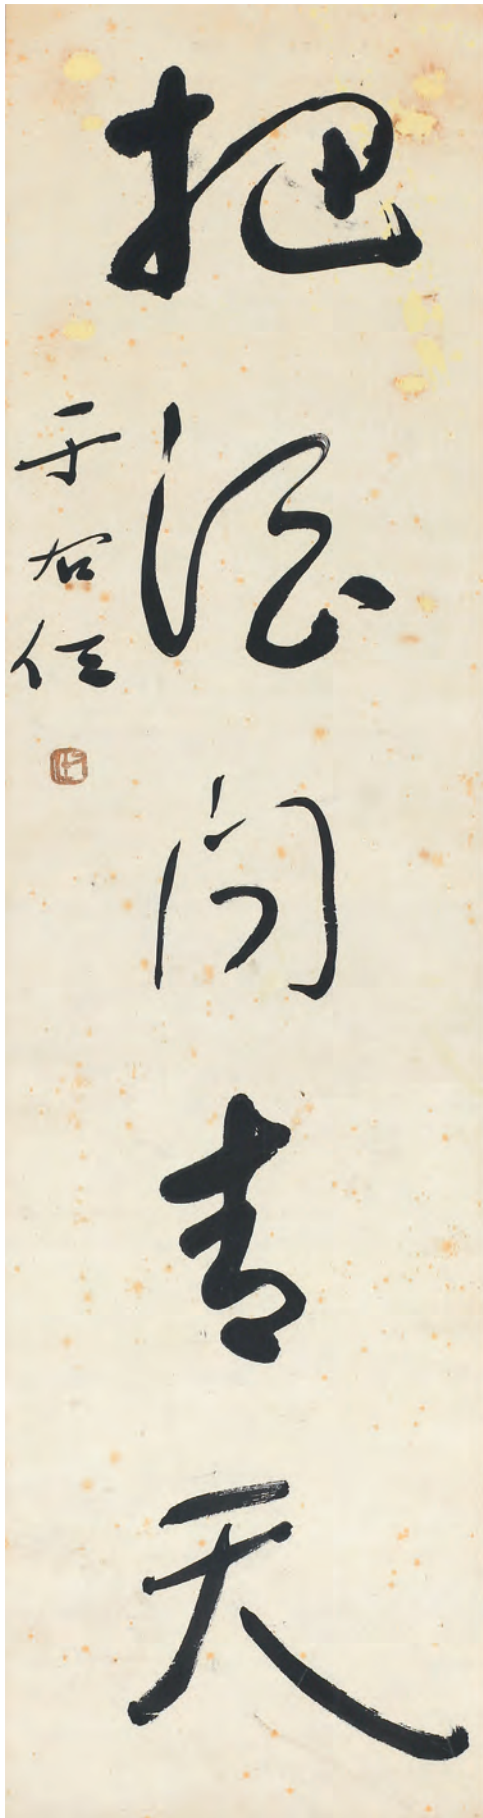 把酒問青天
于右任